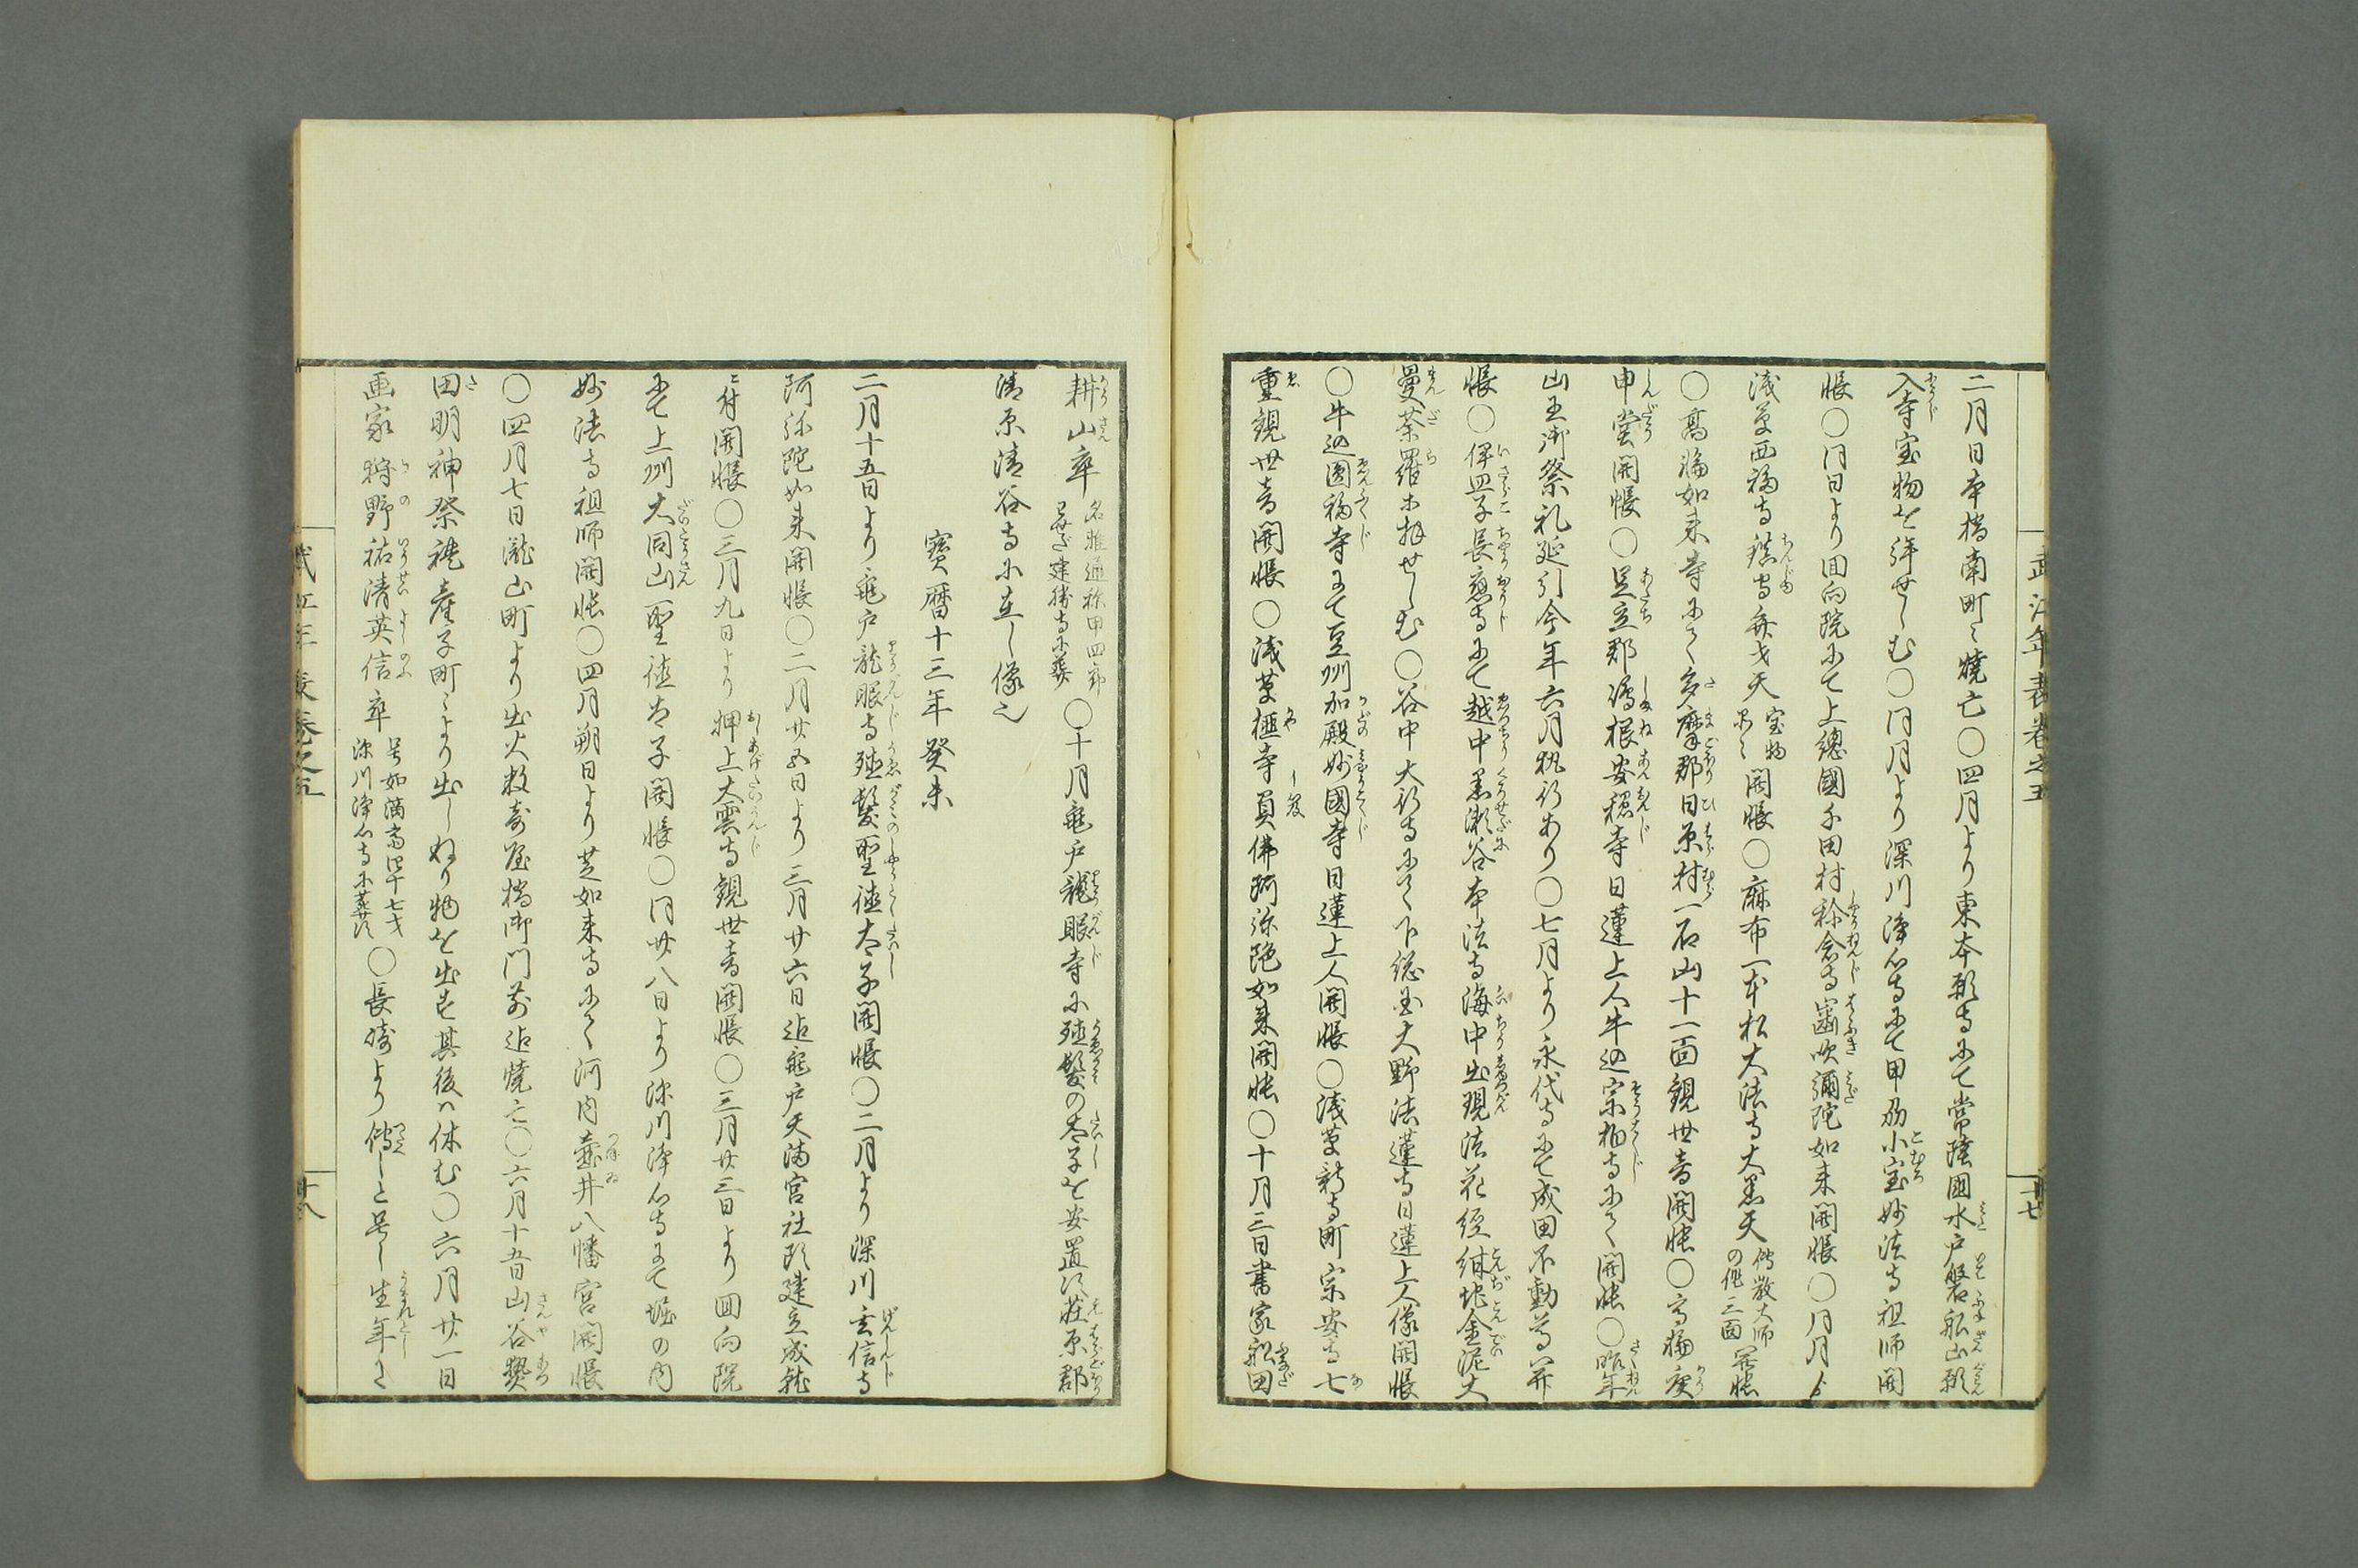 武江年表巻之五
十七
二月日本橋南町々焼亡〇四月より東本願寺にて常陸国水戸磐船山願
入寺宝物を拝せしむ〇同月より深川浄心寺にて甲州小室妙法寺祖師開
帳〇同日より回向院にて上総国千田村称念寺歯吹彌陀如来開帳〇同月より
浅草西福寺鎮守弁才天宝物品々開帳〇麻布一本松大法寺大黒天伝教大師の作三面開帳
〇高輪如来寺にて多摩郡日原村一石山十一面観世音開帳〇高輪庚
申堂開帳〇足立郡嶋根安穏寺日蓮上人牛込宗柏寺にて開帳〇昨年
山王御祭礼延引今年六月執行あり〇七月より永代寺にて成田不動尊開
帳〇伊皿子長応寺にて越中黒瀬谷本法寺海中出現法花経紺地金泥大
曼荼羅等拝せしむ〇谷中大行寺にて下総国大野法蓮寺日蓮上人像開帳
〇牛込圓福寺にて豆州加殿妙國寺日蓮上人開帳〇浅草新寺町宗安寺七
重観世音開帳〇浅草榧寺員佛阿弥陀如来開帳〇十月三日書家舩田
耕山卒名雅通称甲四郎早世建勝寺に葬〇十月亀戸龍眼寺に殖髪の太子を安置す荏原郡
清原清谷寺に在し像也
寶暦十三年癸未
二月十五日より亀戸龍眼寺殖髪聖徳太子開帳〇二月より深川玄信寺
阿弥陀如来開帳〇二月廿五日より三月廿六日迄亀戸天満宮社頭建立成就
ニ付開帳〇三月九日より押上大雲寺観世音開帳〇三月廿三日より回向院
にて上州大同山聖徳太子開帳〇同廿八日より深川浄心寺にて堀の内
妙法寺祖師開帳〇四月朔日より芝如来寺にて河内壷井八幡宮開帳
〇四月七日瀧山町より出火数寄屋橋御門前迄焼亡〇六月十五日山谷熱
田明神祭礼産子町々より出しねり物を出す其後ハ休む〇六月廿一日
画家狩野祐清英信卒号如滴斎四十七才深川浄心寺に葬す〇長崎より傳しと号し生年を
武江年表巻之五
十八